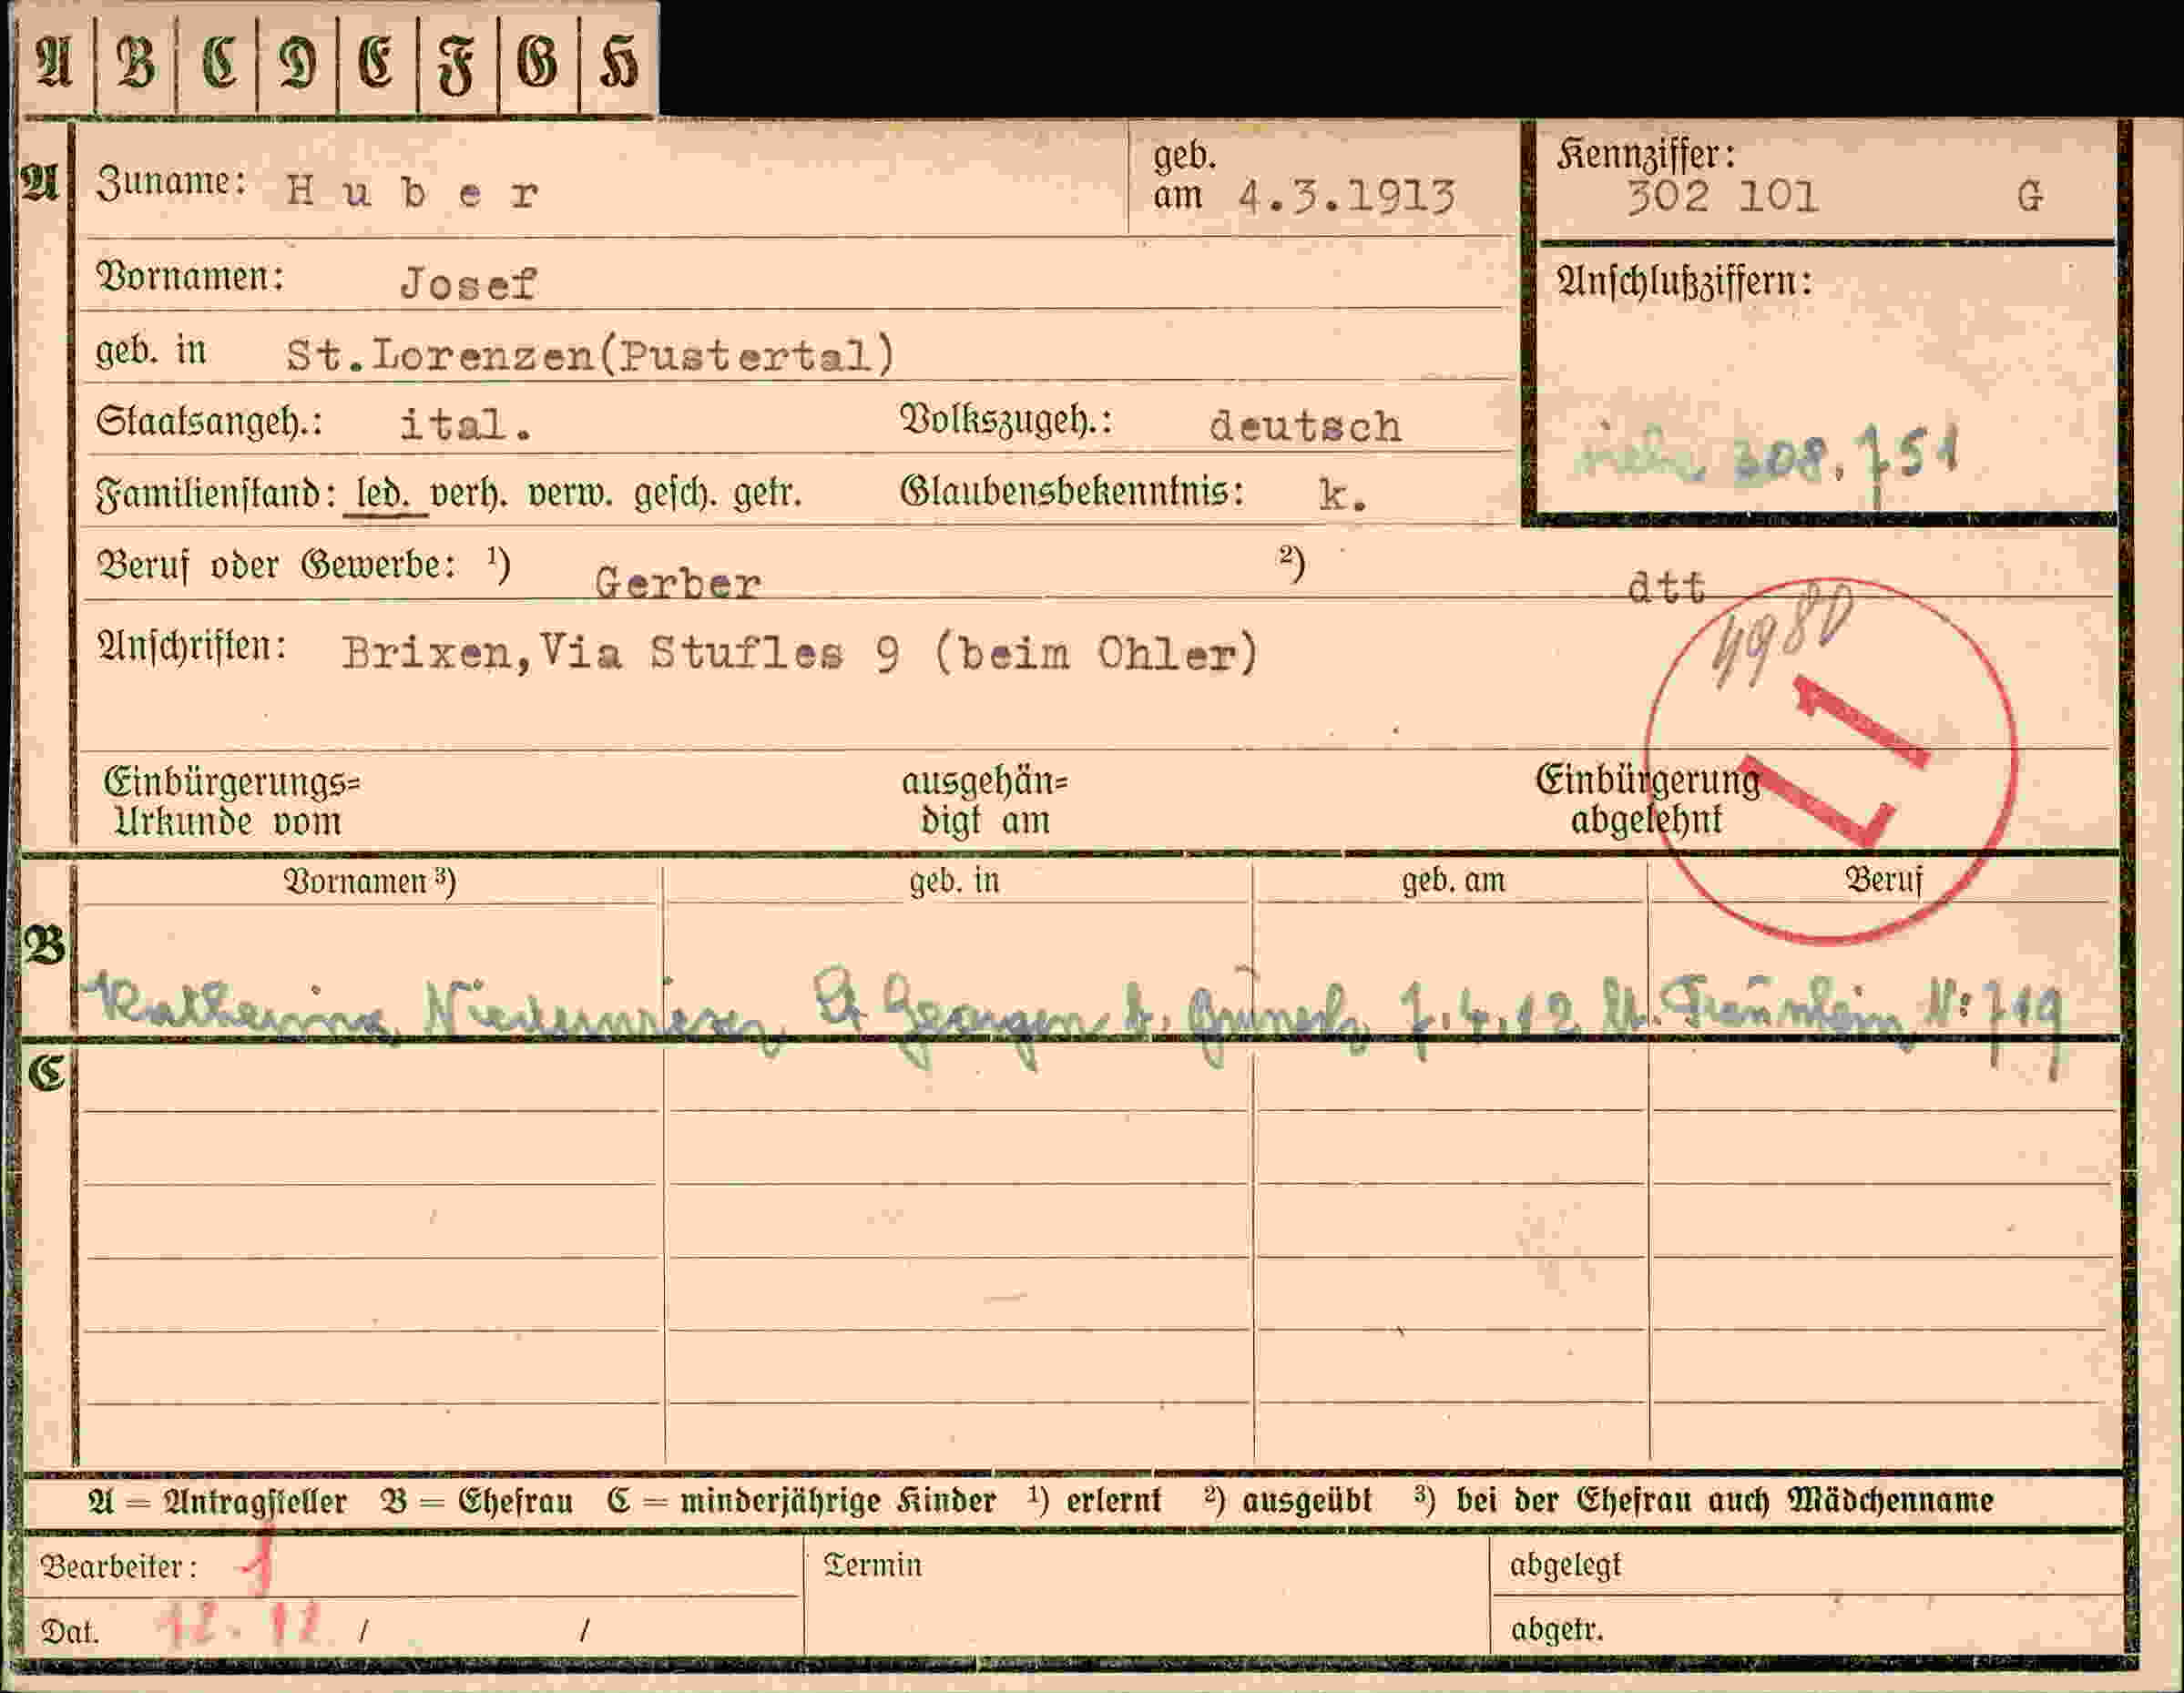 A B C D E F G H
A Zuname: Huber geb. am 4.3.1913
Kennziffer: 302 101 G
Vornamen: Josef
Anschlußziffern:
geb. in St.Lorenzen(Pustertal)
Staatsangeh.: ital. Volkszugeh.: deutsch
308.751
Familienstand: led. verh. verw. gesch. getr. Glaubensbekenntnis: k.
Beruf oder Gewerbe: ¹) Gerber ²) dtt
4980
Anschriften: Brixen,Via Stufles 9 (beim Ohler)
L 1
Einbürgerungs= ausgehän= Einbürgerung
Urkunde vom digt am abgelehnt
Vornamen ³) geb. in geb. am Beruf
B
Katharina St Georgen b. 7.4.12 N: 719
C
A = Antragsteller B = Ehefrau C = minderjährige Kinder ¹) erlernt ²) ausgeübt ³) bei der Ehefrau auch Mädchenname
Bearbeiter: 1 Termin abgelegt
Dat. 12.12 / / abgetr.